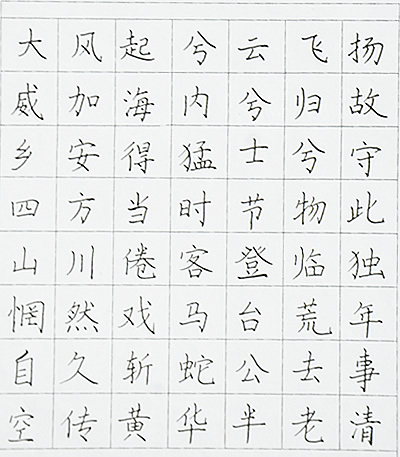 大风起兮云飞扬
威加海内兮归故
乡安得猛士兮守
四方当时节物此
山川倦客登临独
惘然戏马台荒年
自久斩蛇公去事
空传黄华半老清